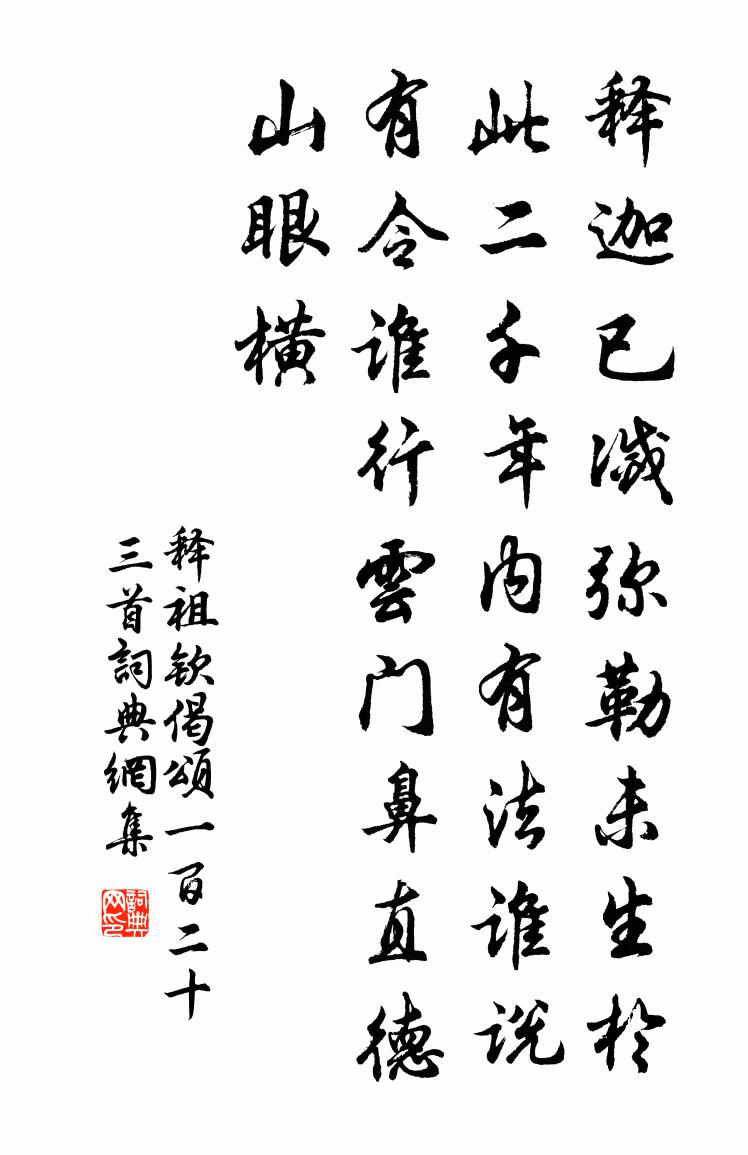 释迦已滅弥勒未生於
此二千年内有法谁说
有令谁行雲门鼻直德
山眼横
释祖钦偈頌一百二十
三首詞典網集
詞典网印